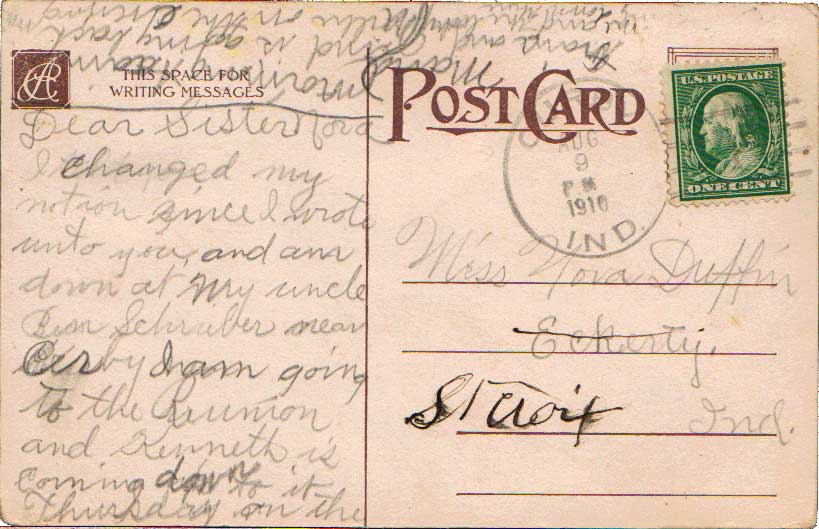 THIS SPACE FOR
WRITING MESSAGES
Dear Sister Nova
I changed my
notion since I wrote
unto you, and am
down at my uncle
Schraber near
I am going
to the Reunion
and Kenneth is
coming down to it
Thursday on the
evening
and is going back
POST CARD
AUG
9
PM
1910
IND.
U.S. POSTAGE
ONE CENT
Miss Nova Duffin
Eckerty,
St Croix
Ind.